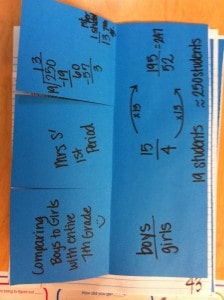 Comparing
Boys to Girls
with entire
7th Grade
Mrs S'
1st
Period
13
19/250
-19
60
-57
3
1 student
13
boys 15 x13 195
girls 4 x13 52
19 students ≈ 250 students
43